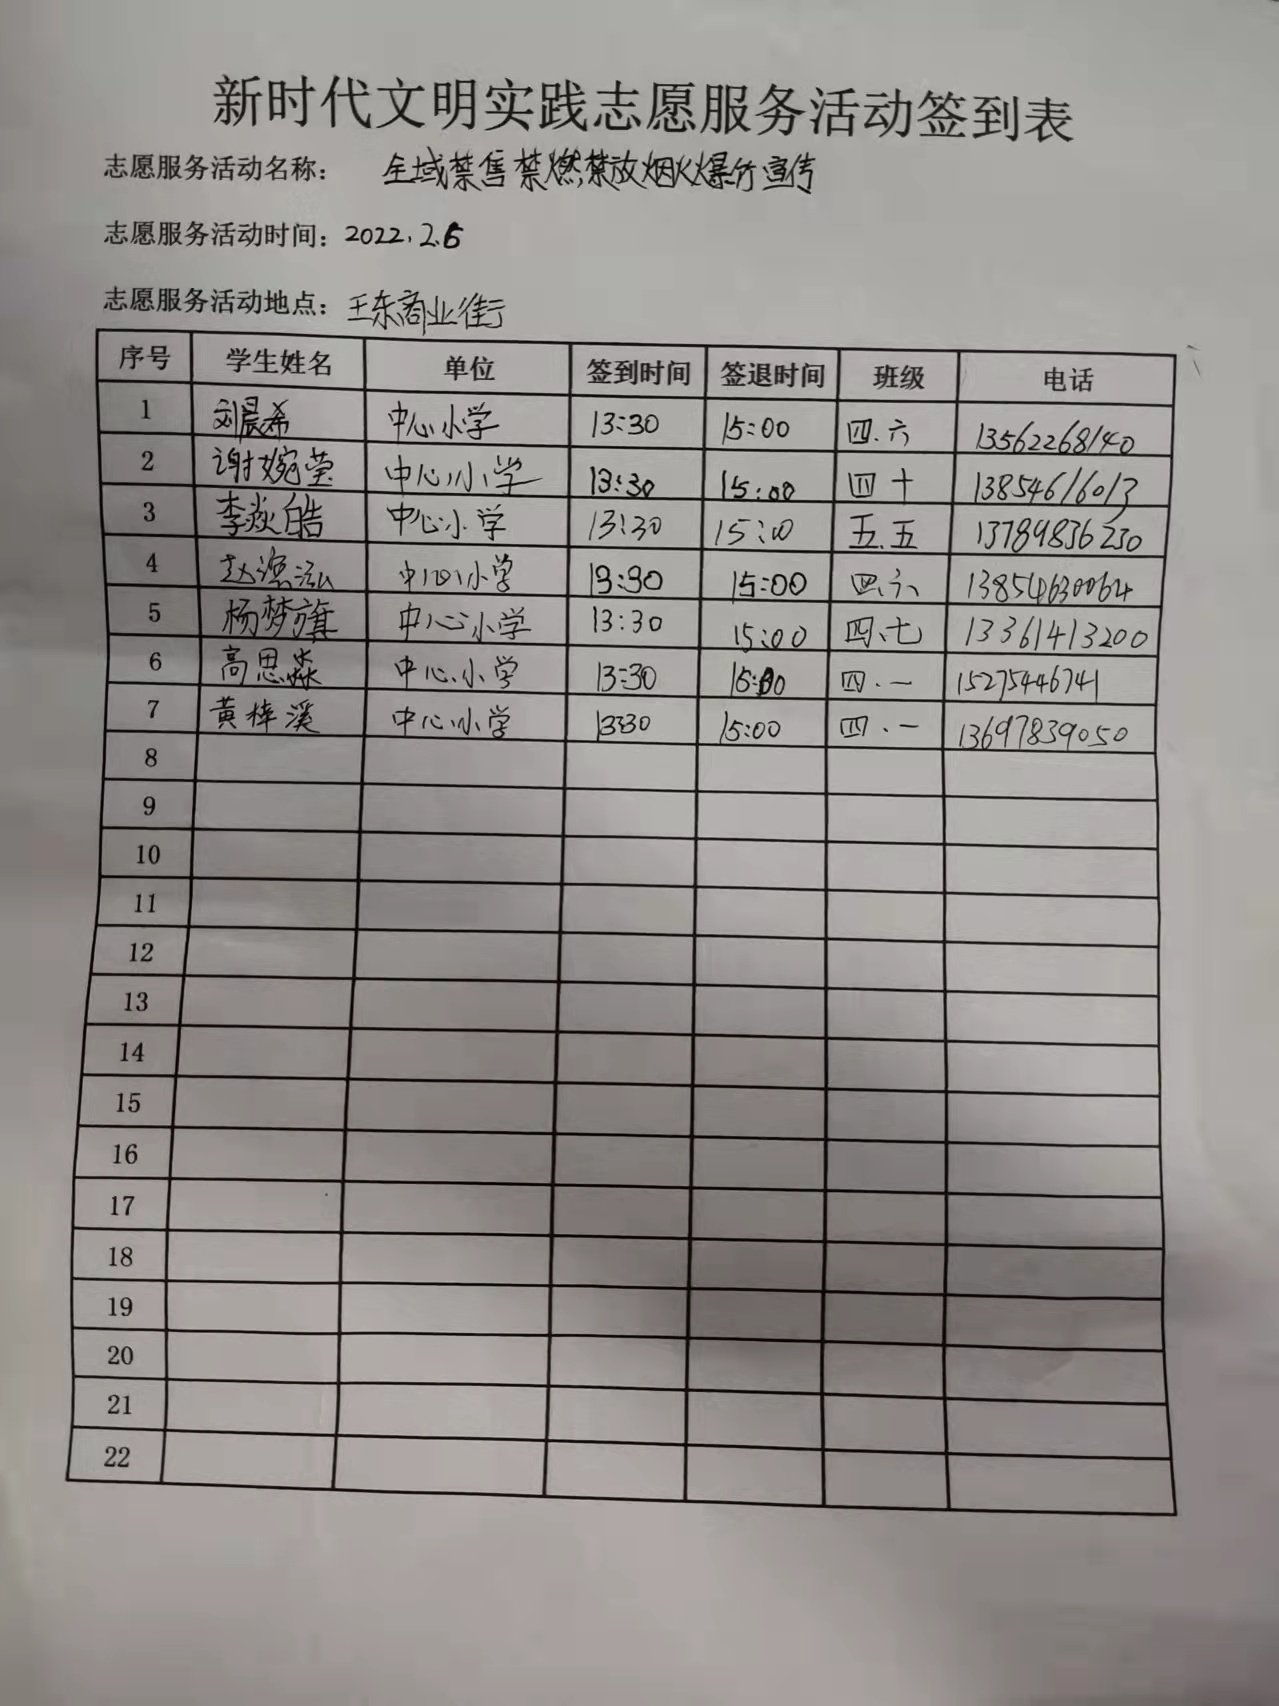 新时代文明实践志愿服务活动签到表
志愿服务活动名称： 全域禁售禁燃禁放烟火爆竹宣传
志愿服务活动时间：2022.2.6
志愿服务活动地点：王东商业街
序号 学生姓名 单位 签到时间 签退时间 班级 电话
1 刘晨希 中心小学 13:30 15:00 四.六 13562268140
2 谢婉莹 中心小学 13:30 15:00 四十 13854616013
3 李焱皓 中心小学 13:30 15:00 五.五 13789836230
4 中心小学 13:30 15:00 四.六 13854630064
5 杨梦旗 中心小学 13:30 15:00 四.七 13361413200
6 高思淼 中心小学 13:30 15:00 四.一 15275446741
7 黄梓溪 中心小学 13:30 15:00 四.一 13697839050
8
9
10
11
12
13
14
15
16
17
18
19
20
21
22